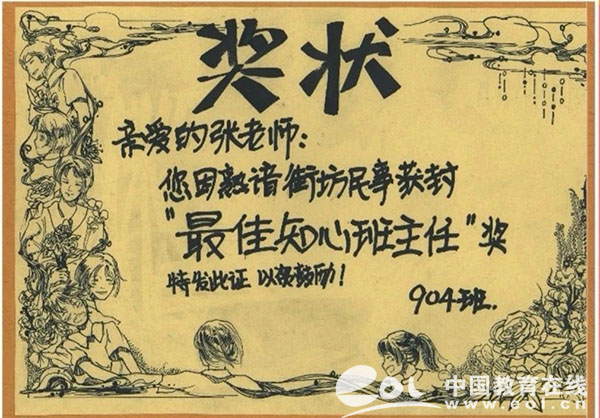 奖状
亲爱的张老师：
您因熟谙街坊民事获封
"最佳知心班主任"奖
特发此证 以兹鼓励！
904班.
eol 中国教育在线
www.eol.cn